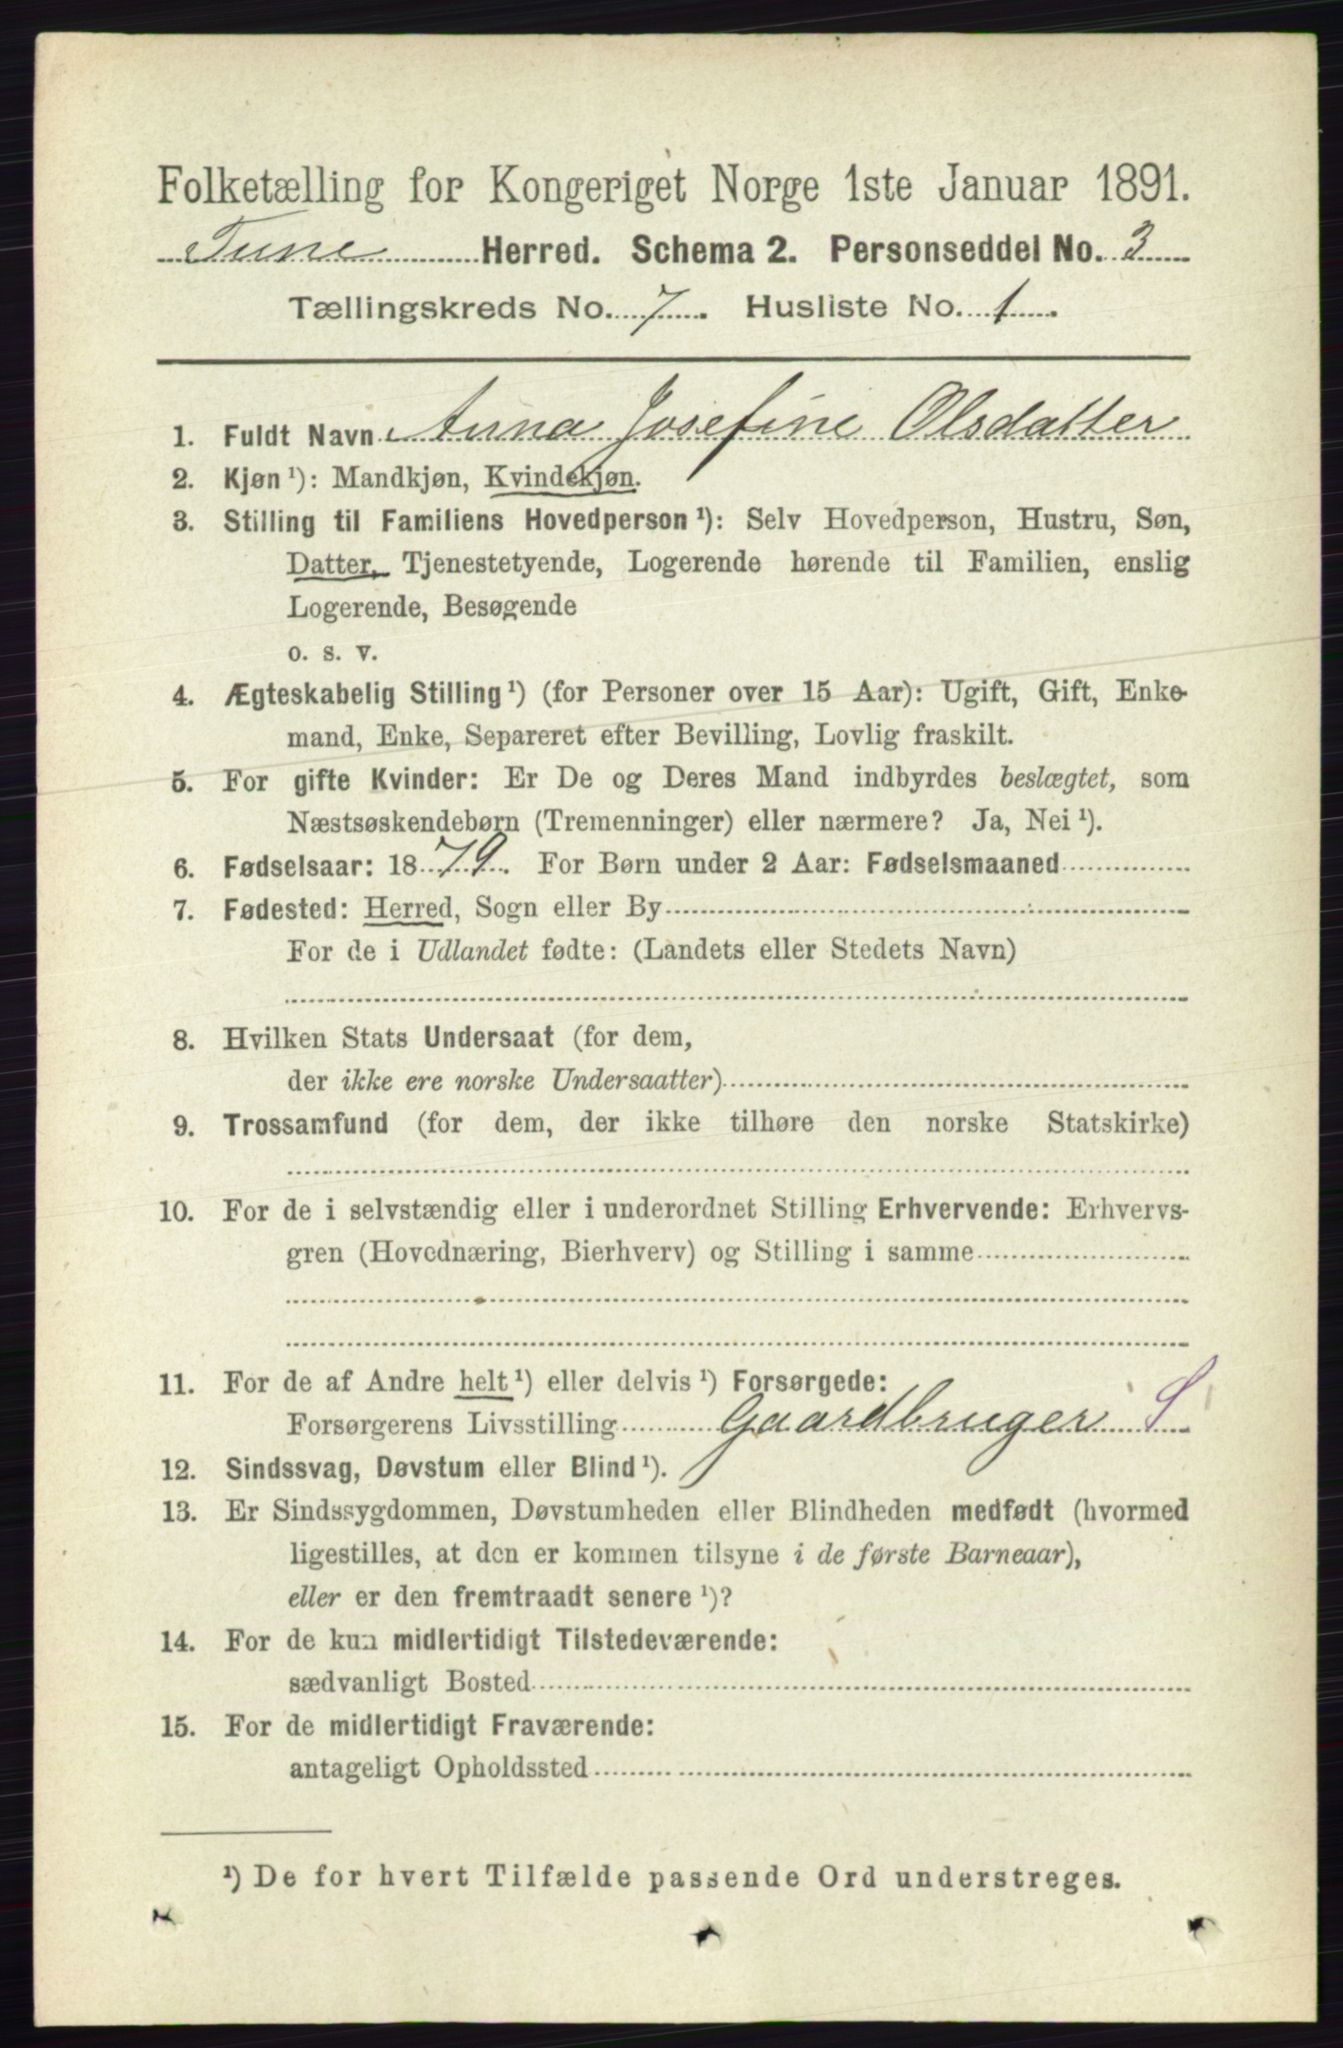 Folketælling for Kongeriget Norge 1ste Januar 1891.
Tune Herred. Schema 2. Personseddel No. 3
Tællingskreds No. 7. Husliste No. 1.
1. Fuldt Navn Anna Josefine Olsdatter
2. Kjøn ¹): Mandkjøn, Kvindekjøn.
3. Stilling til Familiens Hovedperson ¹): Selv Hovedperson, Hustru, Søn,
Datter, Tjenestetyende, Logerende hørende til Familien, enslig
Logerende, Besøgende
o. s. v.
4. Ægteskabelig Stilling ¹) (for Personer over 15 Aar): Ugift, Gift, Enke-
mand, Enke, Separeret efter Bevilling, Lovlig fraskilt.
5. For gifte Kvinder: Er De og Deres Mand indbyrdes beslægtet, som
Næstsøskendebørn (Tremenninger) eller nærmere? Ja, Nei ¹).
6. Fødselsaar: 1879. For Børn under 2 Aar: Fødselsmaaned
7. Fødested: Herred, Sogn eller By
For de i Udlandet fødte: (Landets eller Stedets Navn)
8. Hvilken Stats Undersaat (for dem,
der ikke ere norske Undersaatter)
9. Trossamfund (for dem, der ikke tilhøre den norske Statskirke)
10. For de i selvstændig eller i underordnet Stilling Erhvervende: Erhvervs-
gren (Hovednæring, Bierhverv) og Stilling i samme
11. For de af Andre helt ¹) eller delvis ¹) Forsørgede:
Forsørgerens Livsstilling Gaardbruger S
12. Sindssvag, Døvstum eller Blind ¹).
13. Er Sindssygdommen, Døvstumheden eller Blindheden medfødt (hvormed
ligestilles, at den er kommen tilsyne i de første Barneaar),
eller er den fremtraadt senere ¹)?
14. For de kun midlertidigt Tilstedeværende:
sædvanligt Bosted
15. For de midlertidigt Fraværende:
antageligt Opholdssted
¹) De for hvert Tilfælde passende Ord understreges.